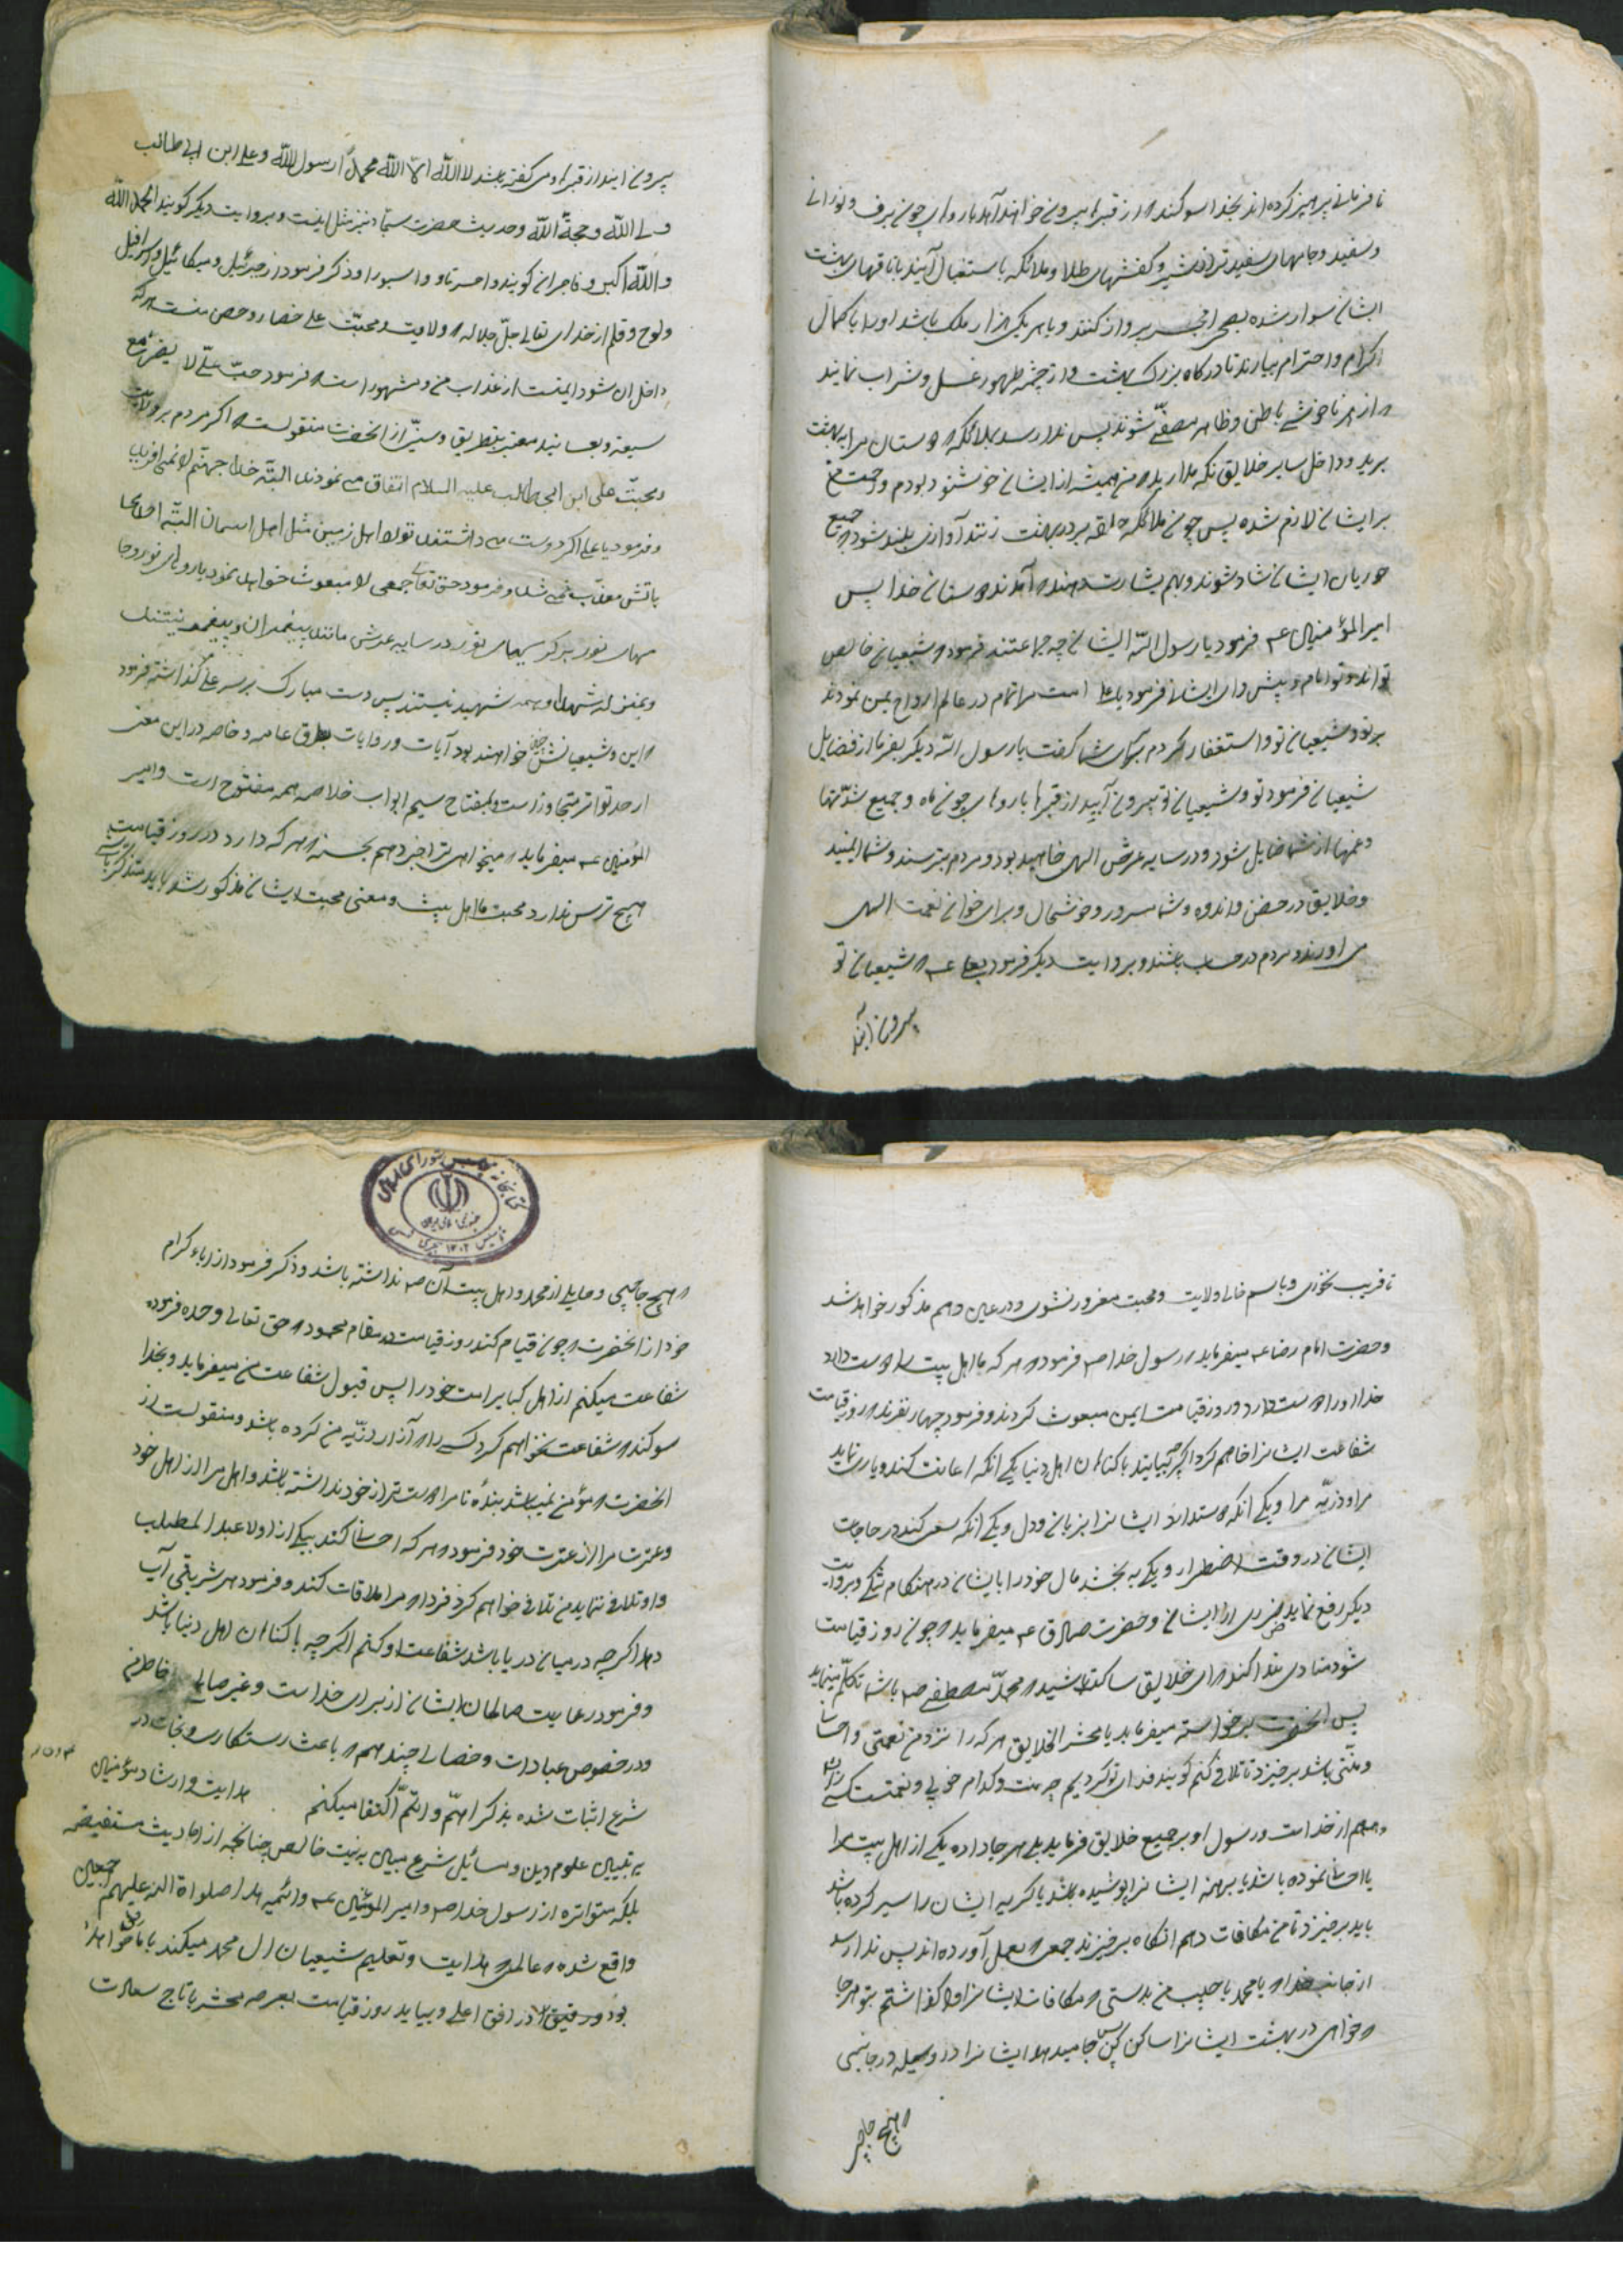 نافرمانی پرهیز کرده اند بخدا سوکند که از قبرها بیرون خواهند آمد با روهای چون برف و نورانی
و سفید و جامهای سفیدتر از شیر و کفشهای طلا و ملائکه باستقبال آیند با ناقهای بهشت
ایشان سوار شده بصحرای محشر پرواز کنند و با هر یک هزار ملک باشد او را با کمال
اکرام و احترام بیارند تا درکاه بزرک بهشت و از چشمه طهور غسل و شراب نمایند
و از هر ناخوشی باطن و ظاهر مصفّی شوند پس ندا رسد بملائکه که دوستان مرا به بهشت
برید و داخل سایر خلایق نکه مدارید که من همیشه از ایشان خوشنود بودم و رحمت من
بر ایشان لازم شده پس چون ملائکه حلقه بر در بهشت زنند آوازی بلند شود که جمیع
حوریان ایشان شاد شوند و بهم بشارت دهند که آمدند دوستان خدا پس
امیرالمؤمنین عم فرمود یا رسول الله ایشان چه جماعتند فرمود که شیعیان خالص
تواند و تو امام و پیشوای ایشان فرمود یا علی امت مرا تمام در عالم ارواح بمن نمودند
بر تو و شیعیان تو استغفار کردم کفت یا رسول الله دیکر بفرما از فضایل
شیعیان فرمود تو و شیعیان تو بیرون آیید از قبرها با روهای چون ماه و جمیع شدّتها
و غمها از شما زایل شود و در سایه عرش الهی خواهید بود و مردم بترسند و شما ایمنید
و خلایق در حزن و اندوه و شما مسرور و خوشحال و برای خوان نعمت الهی
می اورند و مردم در حساب باشند و بروایت دیکر فرمود بعلی عم که شیعیان تو
بیرون آیند
بیرون ایند از قبرها و می کفته باشند لا اله الا الله محمد رسول الله و علی ابن ابی طالب
ولی الله و حجة الله و حدیث حضرت سجاد نیز مثل اینست و بروایت دیکر کویند الحمد لله
و الله اکبر و فاجران کویند واحسرتاه و ذکر فرمود از جبرئیل و میکائیل و اسرافیل
و لوح و قلم از خدای تعالی جلّ جلاله که ولایت و محبّت علی حصار و حصن منست هر که
داخل ان شود ایمنست از عذاب من و مشهور است که فرمود حبّ علیّ لا یضرّ مع
سیئة و بطریق و سنّی از انحضرت منقولست که اکر مردم بر ولایت
و محبّت علی ابن ابی طالب علیه السلام اتفاق می نمودند البتّه خدا جهنّم را نمی افرید
و فرمود یا علی اکر دوست می داشتند تو را اهل زمین مثل اهل اسمان البتّه احدی
باتش معذّب نمی شد و فرمود حق تعالی جمعی را مبعوث خواهد نمود با روهای نور و جا
مهای نور بر کرسیهای نور در سایه عرش مانند پیغمبران و پیغمبر نیستند
و بمنزله شهدا و همه شهید نیستند پس دست مبارک بر سر علی کذاشته فرمود
که این و شیعیانش چنین خواهند بود آیات و روایات بطرق عامه و خاصه در این معنی
از حد تواتر متجاوز است و بمفتاح سیم ابواب خلاصه همه مفتوح است و امیر
المؤمنین عم میفرماید که میخواهی ترا خبر دهم بحسنه که هر که دارد در روز قیامت
هیچ ترس ندارد محبت ما اهل بیت و معنی محبت ایشان مذکور شد باید متذکر باشی
تا فریب نخوری و باسم خالی ولایت و محبت مغرور نشوی و در عین دهم مذکور خواهد شد
و حضرت امام رضا عم میفرماید رسول خدا صم فرمود که هر که ما اهل بیت را دوست دارد
خدا او را دوست دارد و روز قیامت ایمن مبعوث کردند و فرمود چهار نفرند که روز قیامت
شفاعت ایشانرا خواهم کرد اکرچه بیایند با کناهان اهل دنیا یکی انکه اعانت کند و یاری نماید
مرا و ذریّه مرا و یکی انکه دوست دارد ایشانرا بزبان و دل و یکی انکه سعی کند در حاجات
ایشان در وقت اضطرار و یکی به بخشد مال خود را بایشان در هنکام تنکی و بروایت
دیکر رفع نماید ضرری را از ایشان و حضرت صادق عم میفرماید که چون روز قیامت
شود منادی ندا کند که ای خلایق ساکت باشید که محمد مصطفی صم با شما تکلّم مینماید
پس انحضرت برخواسته میفرماید یا معشر الخلایق هر که را نزد من نعمتی و احسا
و منّتی باشد برخیزد تا تلافی کنم کویند فدای تو کردیم چه منت و کدام خوبی و نعمت کسی را
از خداست و رسول او بر جمیع خلایق فرماید بلی هر جا داده یکی از اهل بیت مرا
یا احسا نموده باشد یا برهنه ایشانرا پوشیده باشد یا کرسنه ایشان را سیر کرده باشد
باید برخیزد تا من مکافات دهم انکاه برخیزند جمعی که بعمل آورده اند پس ندا رسد
از جانب خدا که یا محمد یا حبیب من بدرستی که مکافات ایشانرا واکذاشتم بتو هر جا
که خواهی در بهشت ایشانرا ساکن کن پس جا میدهد ایشانرا در وسیله در جائی
که هیچ حاجبی
که هیچ حاجبی و حایلی از محمد و اهل بیت آن صم نداشته باشد و ذکر فرمود از اباء کرام
خود از انحضرت که چون قیام کند روز قیامت در مقام محمود که حق تعالی وعده فرموده
شفاعت میکنم از اهل کبایر امت خود را پس قبول شفاعت من میفرماید و بخدا
سوکند که شفاعت نخواهم کرد کسی را که آزار ذرّیه من کرده باشد و منقولست از
انحضرت که مؤمن نمیباشد بنده تا مرا دوست تر از خود نداشته باشد و اهل مرا از اهل خود
و عترت مرا از عترت خود فرمود که هر که احسان کند بیکی از اولاد عبد المطلب
و او تلافی ننماید من تلافی خواهم کرد فردا که مرا ملاقات کند و فرمود هر شربتی آب
دهد اکرچه در میان دریا باشد شفاعت او کنم اکرچه با کناهان اهل دنیا باشد
و فرمود رعایت صالحان ایشان از برای خداست و غیر صالح
و در خصوص عبادات و خصالی چند هم که باعث رستکاری و نجات در
شرع اثبات شده بذکر اهمّ و اتمّ اکتفا میکنم هدایت و ارشاد مؤمنین
به تبیین علوم دین و مسائل شرع مبین به نیت خالص چنانچه از احادیث مستفیضه
بلکه متواتره از رسول خدا صم و امیر المومنین عم و ائمه هدا صلواة الله علیهم اجمعین
واقع شده که عالمی که هدایت و تعلیم شیعیان ال محمد میکند با ما خواهد
بود و رفیق در رفیق اعلی و بیاید روز قیامت بعرصه محشر با تاج سعادت